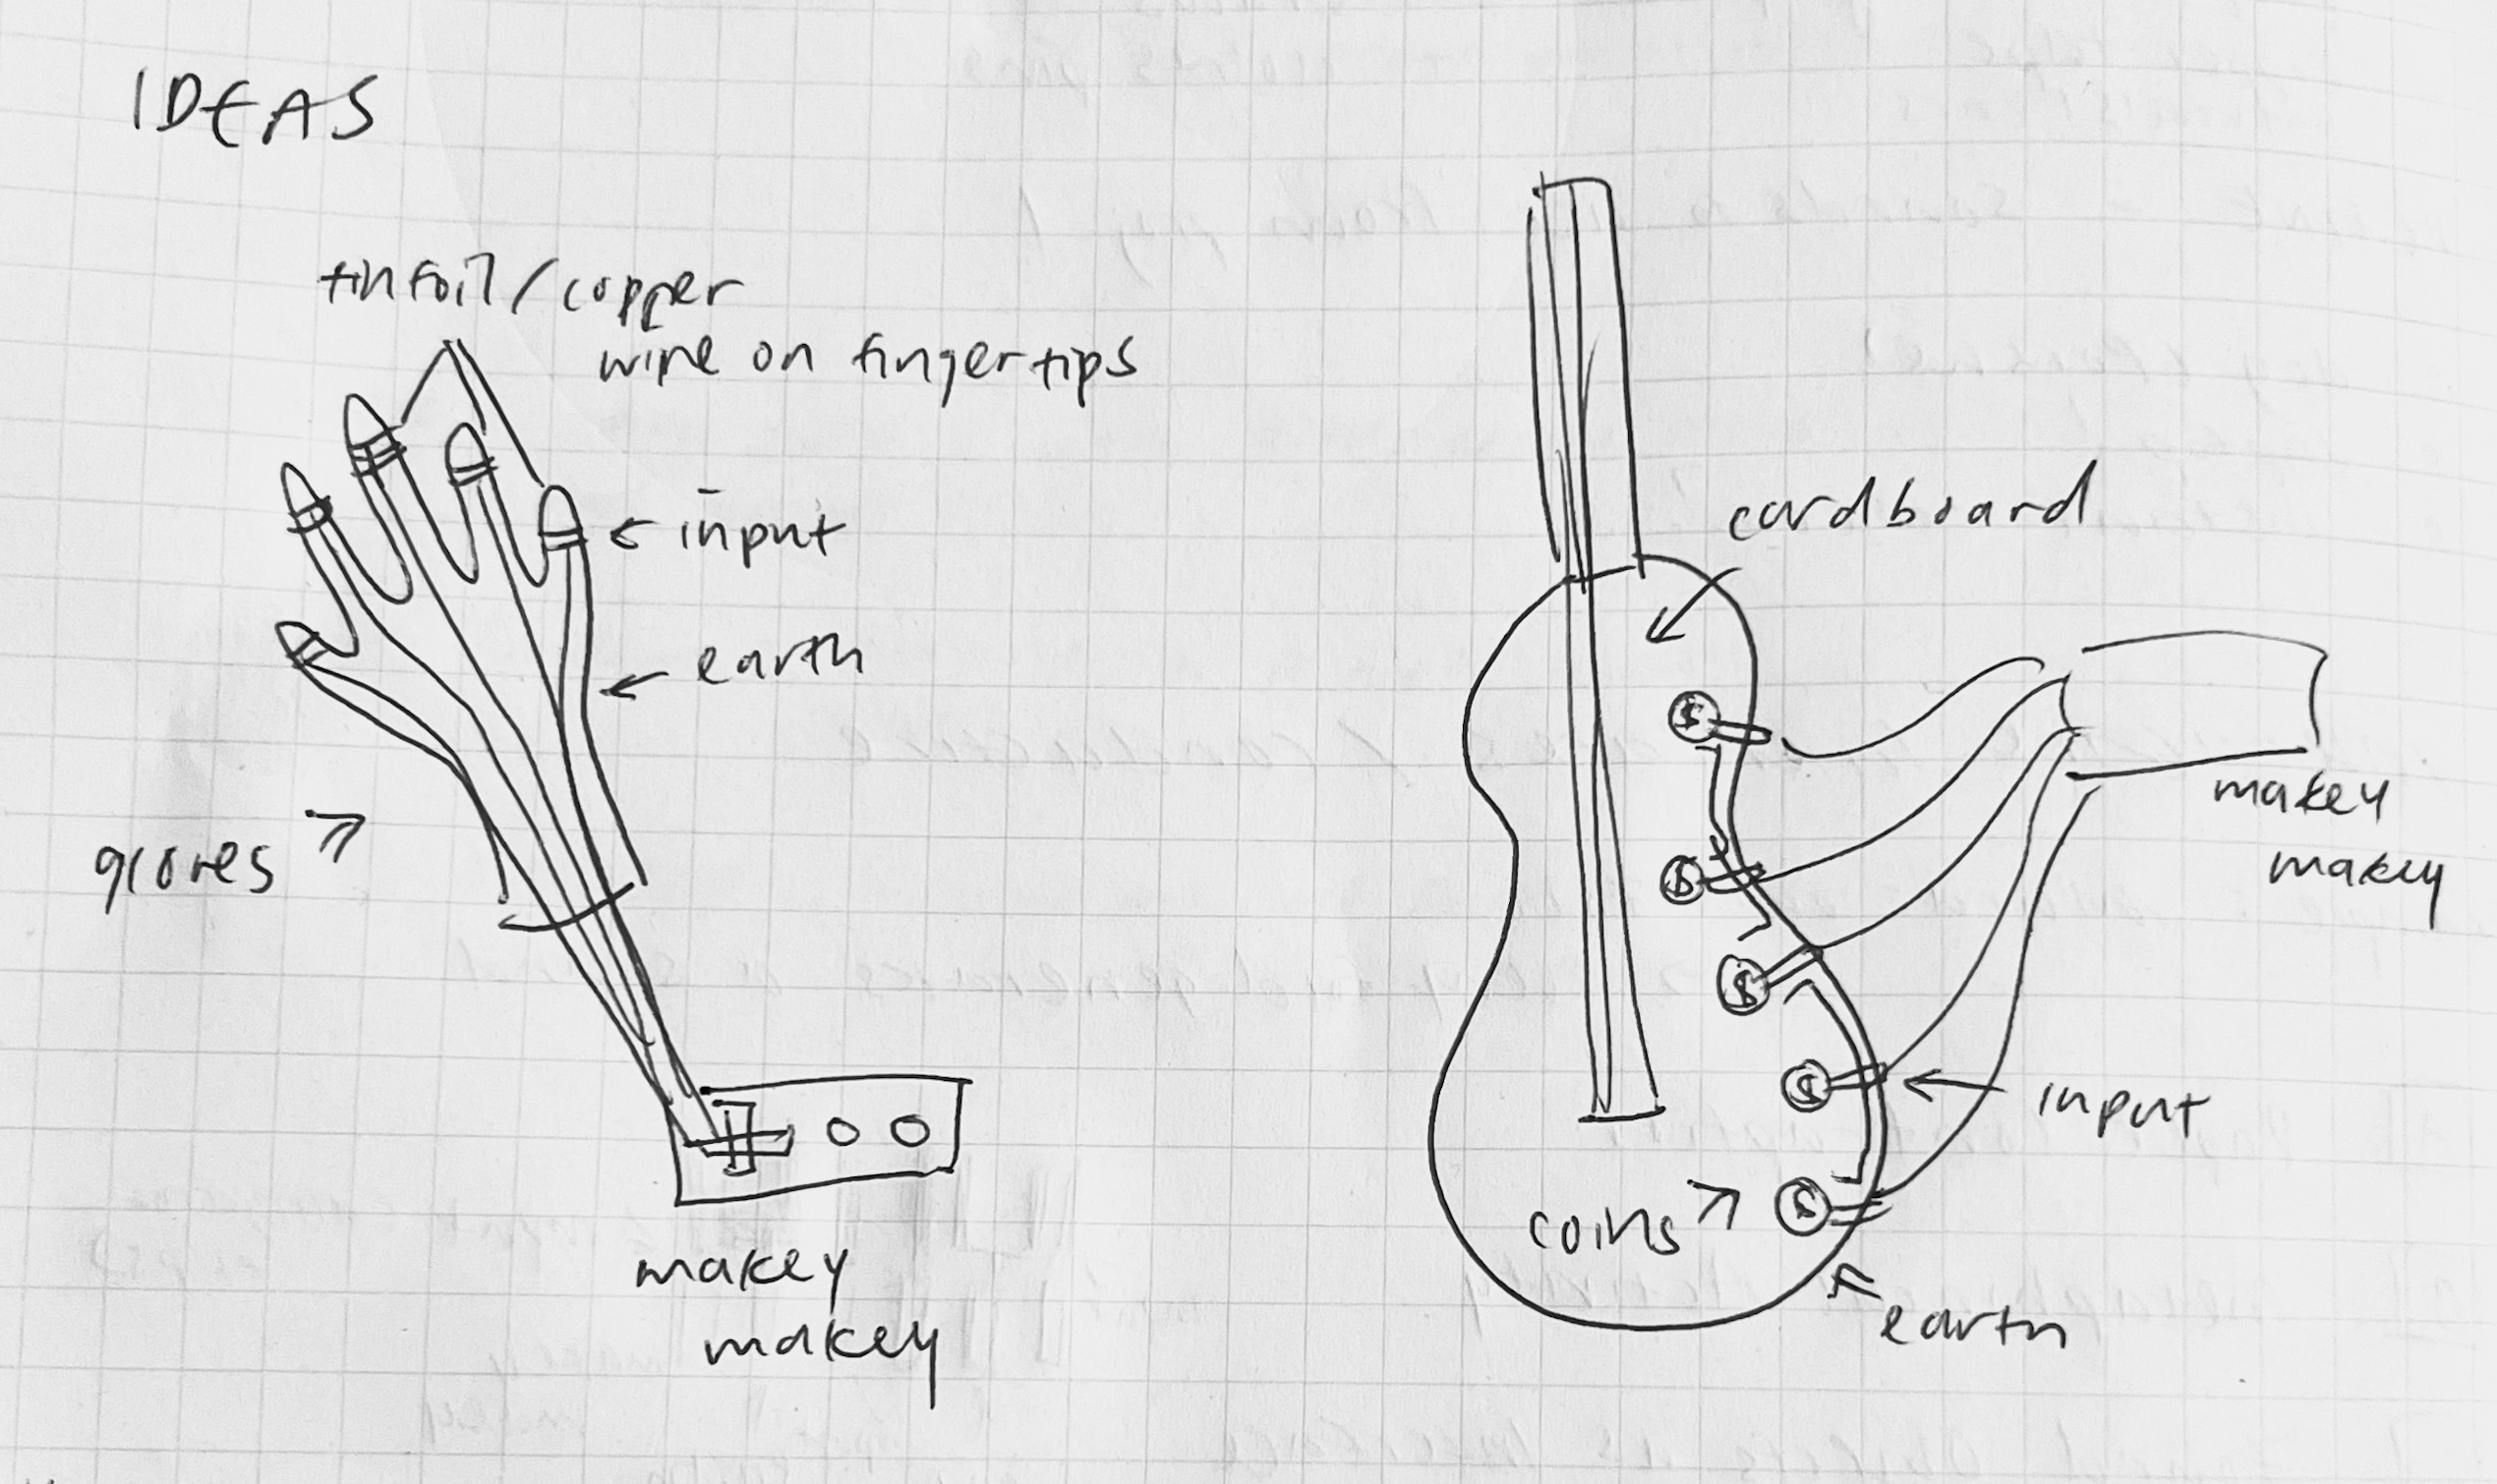 IDEAS
tinfoil/copper
wire on fingertips
← input
← earth
gloves
makey
makey
cardboard
makey
makey
input
coins
earth
$
$
$
$
$